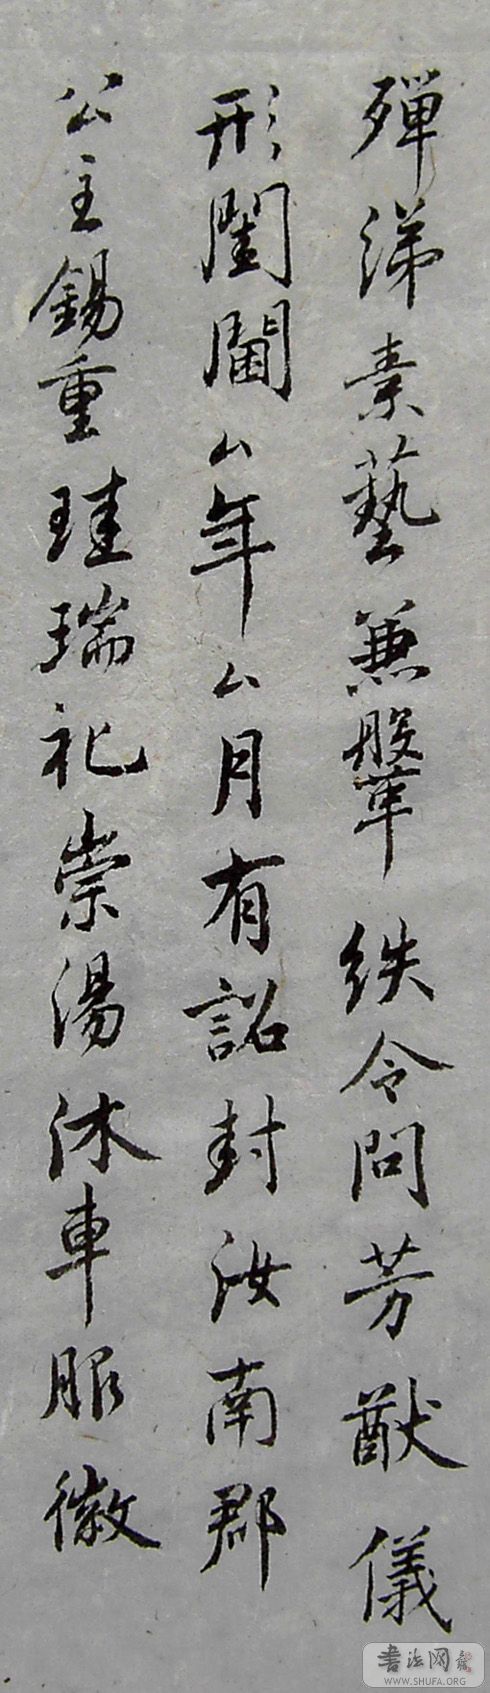 殫綈素藝兼鞶紩令問芳猷儀
形閨閫厶年厶月有詔封汝南郡
公主錫重珪瑞祀崇湯沐車服徽
書法网
WWW.SHUFA.ORG